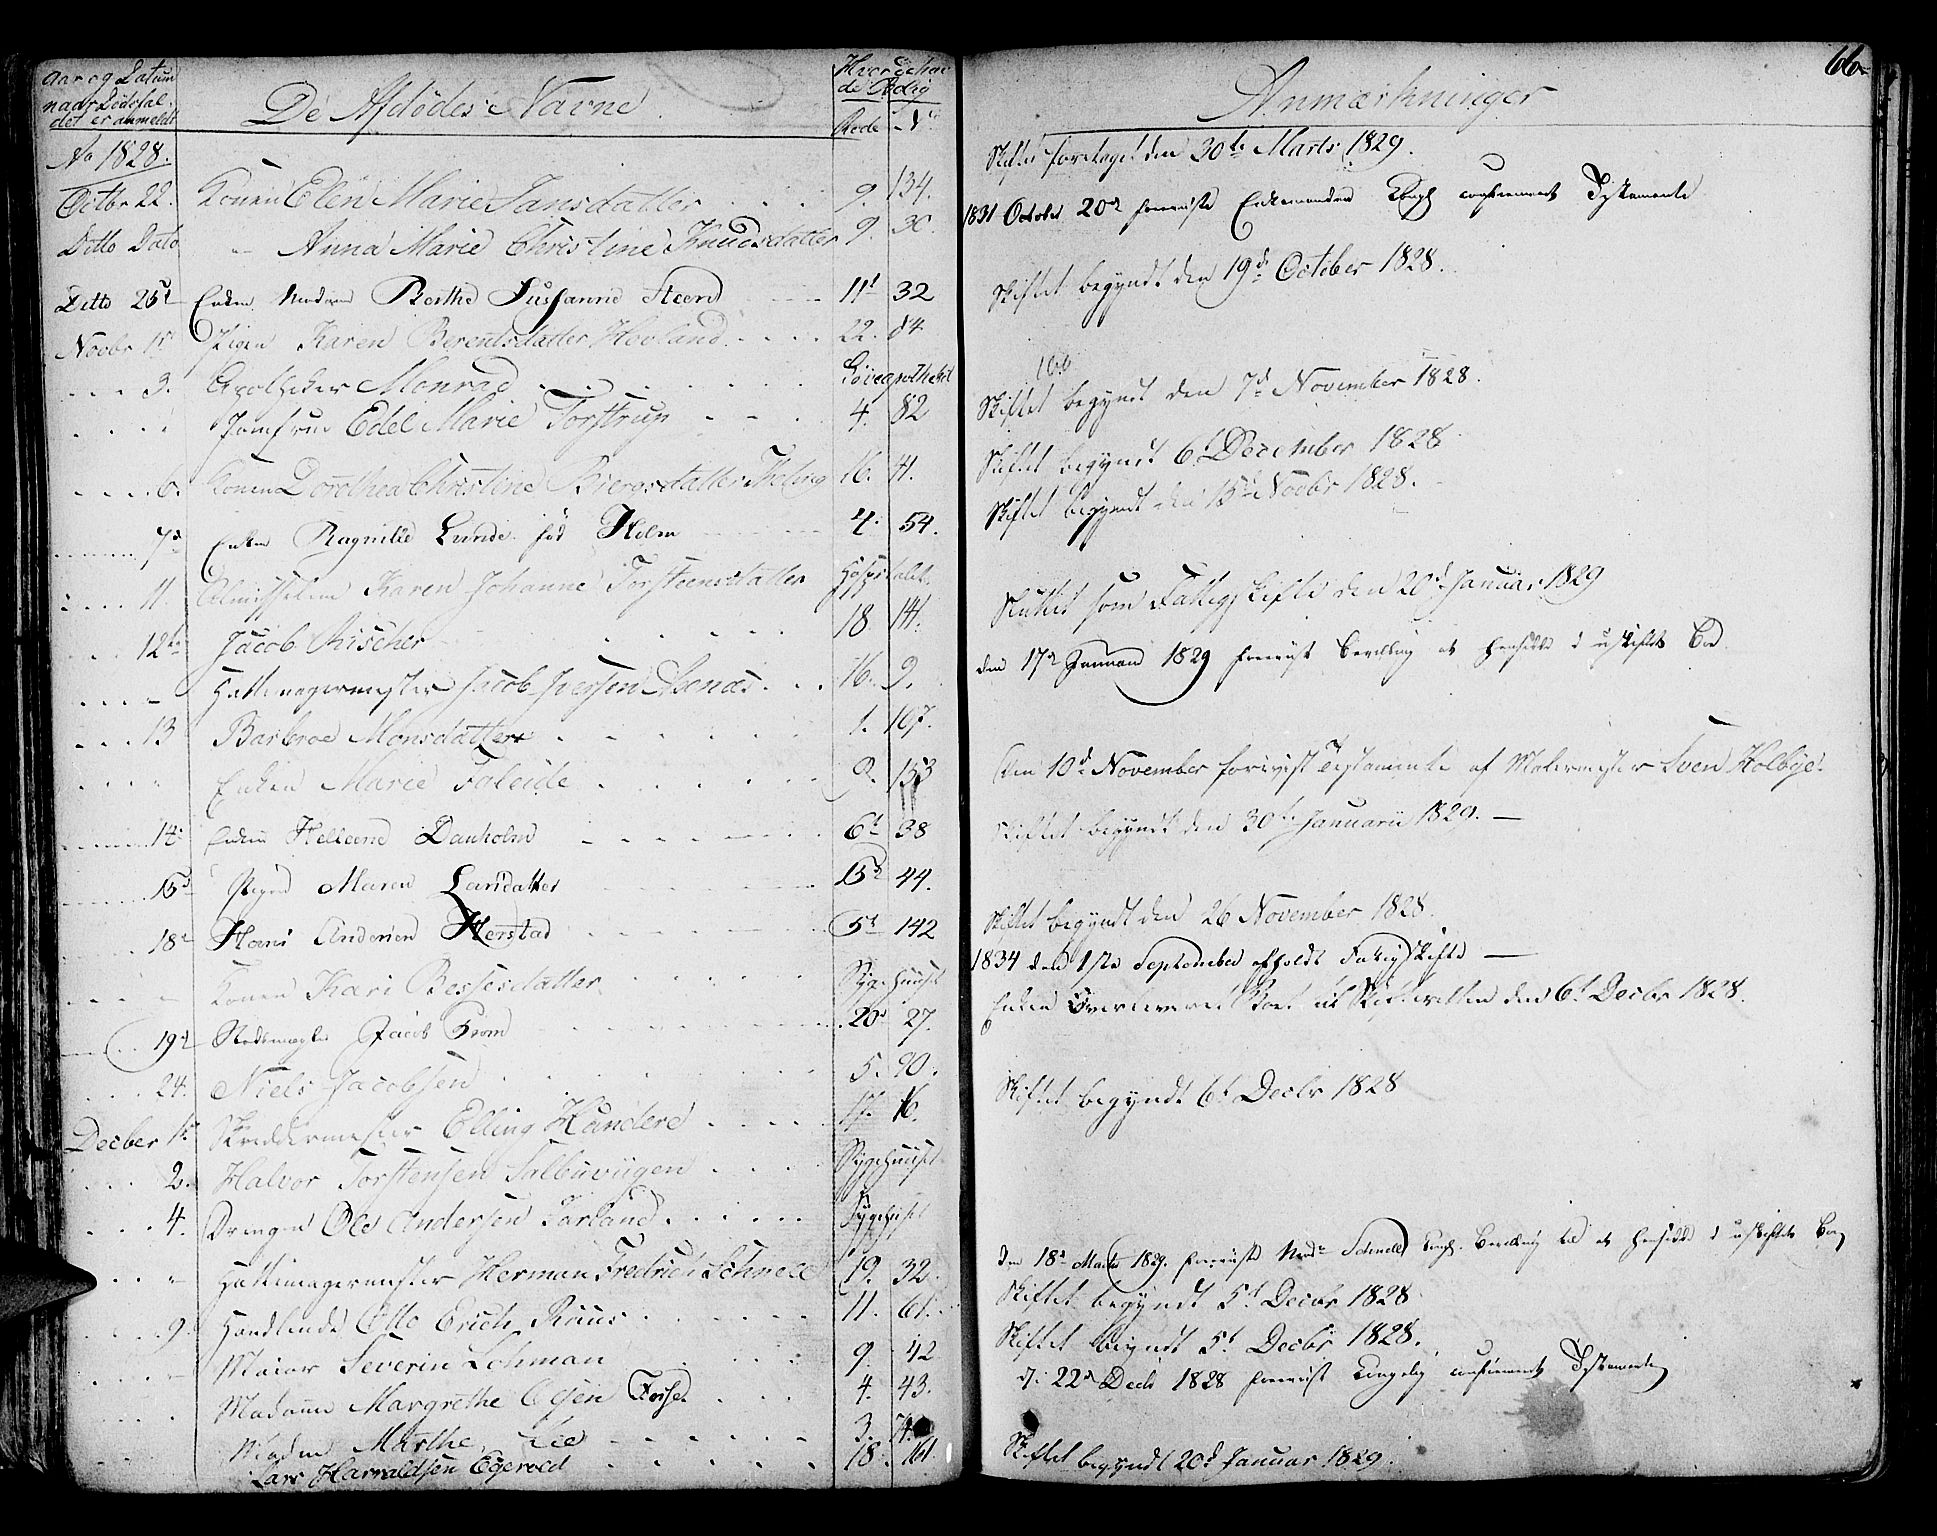 Aar og Datum
naar Dödsfal-
det er anmeldt
De Afdödes Navne
Hvor de har
Rode No
Ao 1828.
Octbr 22. Konen Elen Marie Jansdatter 9. 134.
Ditto Dato - Anna Marie Christine Knudsdatter 9. 30.
Ditto 25d Enken Madame Berthe Sussanne Steen 11t 32
Novbr 1t Pigen Karen Berentsdatter Hovland 22. 84
3. Apotheker Monrad Löveapotheket
" Jomfrue Edel Marie Torstrup 4. 82
6. Konen Dorothea Christine Biergsdatter 16. 41.
7d Enken Ragnilde Lunde föd Holm 4. 54.
11. Karen Johanne Torstensdatter Hospitalet
12te Jacob Rischer 18 141.
- Hattemagermester Jacob Iversen Asenæs 16. 9.
13 Barbroe Monsdatter 1. 197.
" Enken Marie Faleide 9. 153
14. Enken Helleene Danholm 6t 38
15d Pigen Maren Larsdatter 15d 44.
18d Hans Andersen Herstad 5t 142
- Konen Kari Bessesdatter Sygehuuset
19d Jacob From 20d 27.
24. Niels Jacobsen 5. 90.
Decber 1t Skreddermester Elling Hundere 17. 16.
2. Halvor Torstensen Salbuviigen Sygehuuset
4. Drengen Ole Andersen Tarland Sygehuset
" Hattemagermester Herman Fredrich Schnell 19. 32.
9. Handlende Otto Erich Ruus 11. 61.
- Maior Severin Lohman 9. 42
Madame Margrethe Olsen 4. 43.
Madme Marthe Lie 3. 74.
Lars Harraldsen Egevold 18. 161.
66.
Anmærkninger
Skiftet foretaget den 30te Marts 1829.
1831 October 20d foreviste Enkemanden Kongl confirmeret Testamente
Skiftet begyndt den 19d October 1828.
166
Skiftet begyndt den 7d November 1828.
Skiftet begyndt 6t December 1828
Skiftet begyndt den 15d Novbr 1828.
Sluttet som Fattigskifte den 20d Januar 1829
den 17d Januari 1829 foreviist Bevilling at hensidde i uskiftet Boe
Den 10d November foreviist Testamente af Malermester Sven Holbye.
Skiftet begyndt den 30te Januarii 1829. —
Skiftet begyndt den 26 November 1828.
1834 den 1ste September afholdt Fattigskifte —
Enken overleveret Boet til Skifteretten den 6t Decbr 1828.
Skiftet begyndt 6t Decbr 1828
den 18d Marts 1829. foreviiste Mad. Schnell Kongl. Bevilling til at hensidde i uskiftet Boe
Skiftet begyndt 5t Decbr 1828
Skiftet begyndt 5t Decbr 1828.
22d Decbr 1828 foreviist Kongelig confirmeret Testamente
Skiftet begyndt 20d Januar 1829.